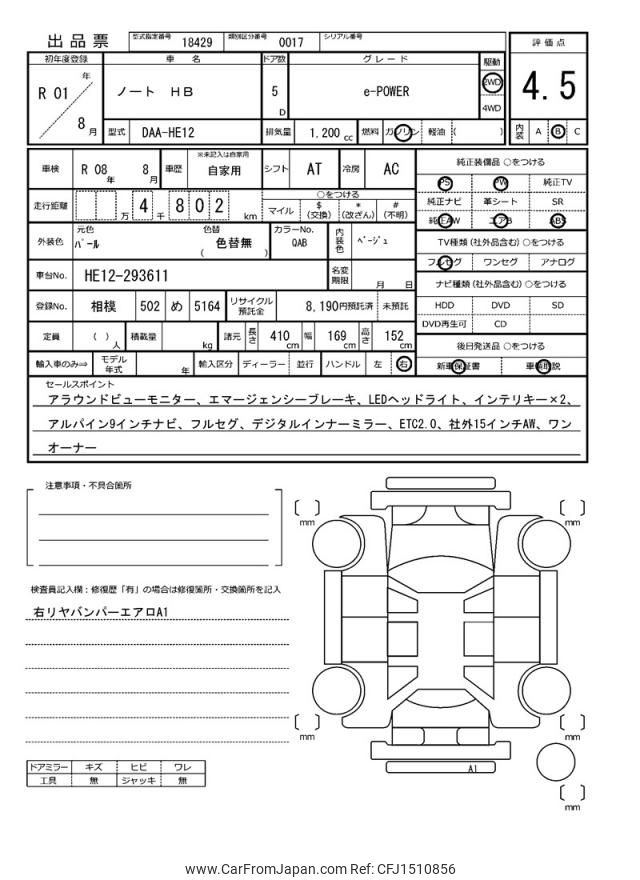 出品票 型式指定番号 18429 類別区分番号 0017 シリアル番号
初年度登録 車名 ドア数 グレード 駆動 評価点
R 01 年 8 月 ノート HB 5 D e-POWER 2WD 4WD 4.5
型式 DAA-HE12 排気量 1,200 cc 燃料 ガソリン 軽油 ( ) 内装 A B C
車検 R 08 年 8 月 車歴 ※未記入は自家用 自家用 シフト AT 冷房 AC
純正装備品 ○をつける
PS PW 純正TV
純正ナビ 革シート SR
純正AW エアB ABS
走行距離 万 4 千 8 0 2 km ○をつける
マイル $ (交換) * (改ざん) # (不明)
外装色 元色 パール 色替 色替無 ( ) カラーNo. QAB 内装色 ベージュ
TV種類 (社外品含む) ○をつける
フルセグ ワンセグ アナログ
車台No. HE12-293611 名変期限 月 日
ナビ種類 (社外品含む) ○をつける
HDD DVD SD
DVD再生可 CD
登録No. 相模 502 め 5164 リサイクル預託金 8,190円預託済 未預託
定員 ( ) 人 積載量 kg 諸元 長さ 410 cm 幅 169 cm 高さ 152 cm
後日発送品 ○をつける
新車保証書 車輌取説
輸入車のみ⇒ モデル年式 年 輸入区分 ディーラー 並行 ハンドル 左 右
セールスポイント
アラウンドビューモニター、エマージェンシーブレーキ、LEDヘッドライト、インテリキー×2、
アルパイン9インチナビ、フルセグ、デジタルインナーミラー、ETC2.0、社外15インチAW、ワン
オーナー
注意事項・不具合箇所
mm mm
検査員記入欄:修復歴「有」の場合は修復箇所・交換箇所を記入
右リヤバンパーエアロA1
mm mm
ドアミラー キズ ヒビ ワレ
工具 無 ジャッキ 無
A1
mm
www.CarFromJapan.com Ref: CFJ1510856